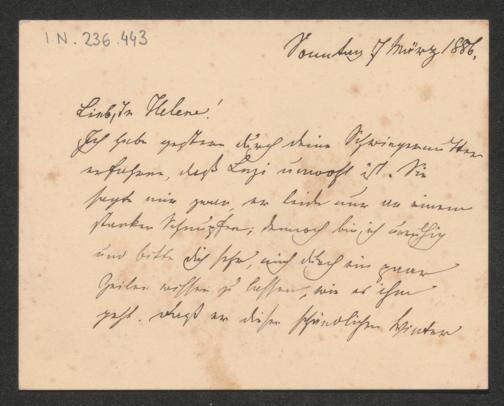 I.N. 236.443
Sonntag 7 März 1886.
Liebste Helene!
Ich habe gestern durch deine Schwiegermutter
erfahren, daß Lazi unwohl ist. Sie
sagte mir zwar, er leide nur an einem
starken Schnupfen; dennoch bin ich unruhig
und bitte dich sehr, mich durch ein paar
Zeilen wissen zu lassen, wie es ihm
geht. Daß er diesen schändlichen Winter